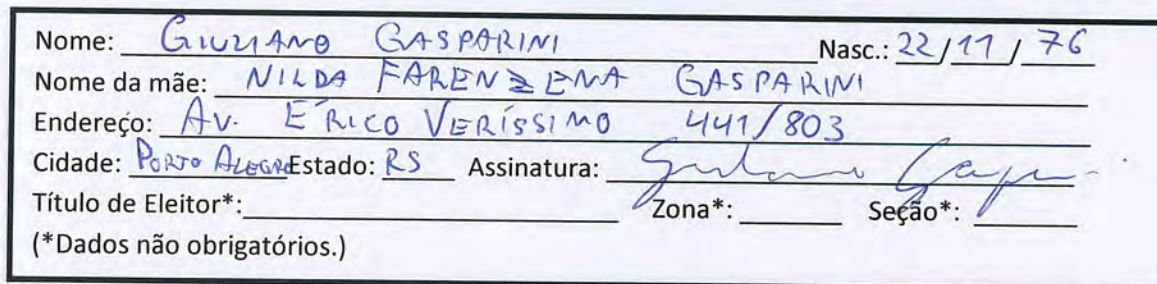 Nome: GIULIANO GASPARINI Nasc.: 22/11/76
Nome da mãe: NILDA FARENZENA GASPARINI
Endereço: AV. ÉRICO VERÍSSIMO 441/803
Cidade: PORTO ALEGRE Estado: RS Assinatura:
Título de Eleitor*: Zona*: Seção*:
(*Dados não obrigatórios.)